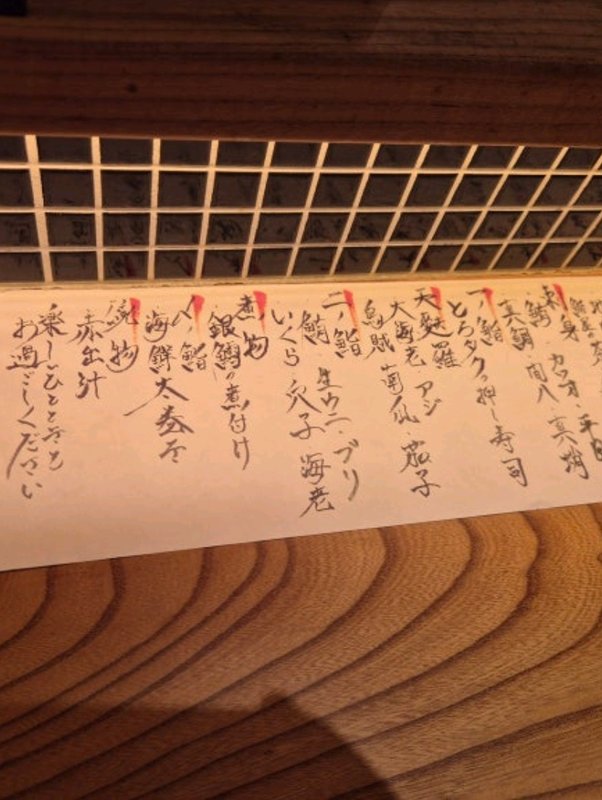 刺身
鮪 カツオ・平目
真鯛・間八・真蛸
一ノ鮨
とろタクの押し寿司
天麩羅
大海老 アジ
烏賊 南瓜・茄子
二ノ鮨
鮪 生ウニ・ブリ
いくら 穴子 海老
煮物
銀鱈の煮付け
〆ノ鮨
海鮮太巻
椀物
赤出汁
楽しいひとときを
お過ごしください